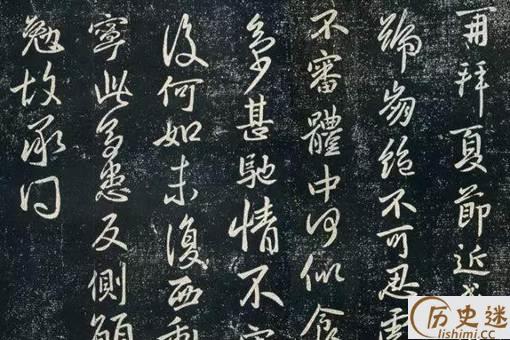 再拜夏節近
號崩絕不可忍
不審體中何似食
多甚馳情不
後何如未復西
寧此多患反側
勉故承問
历史迷
lishimi.cc